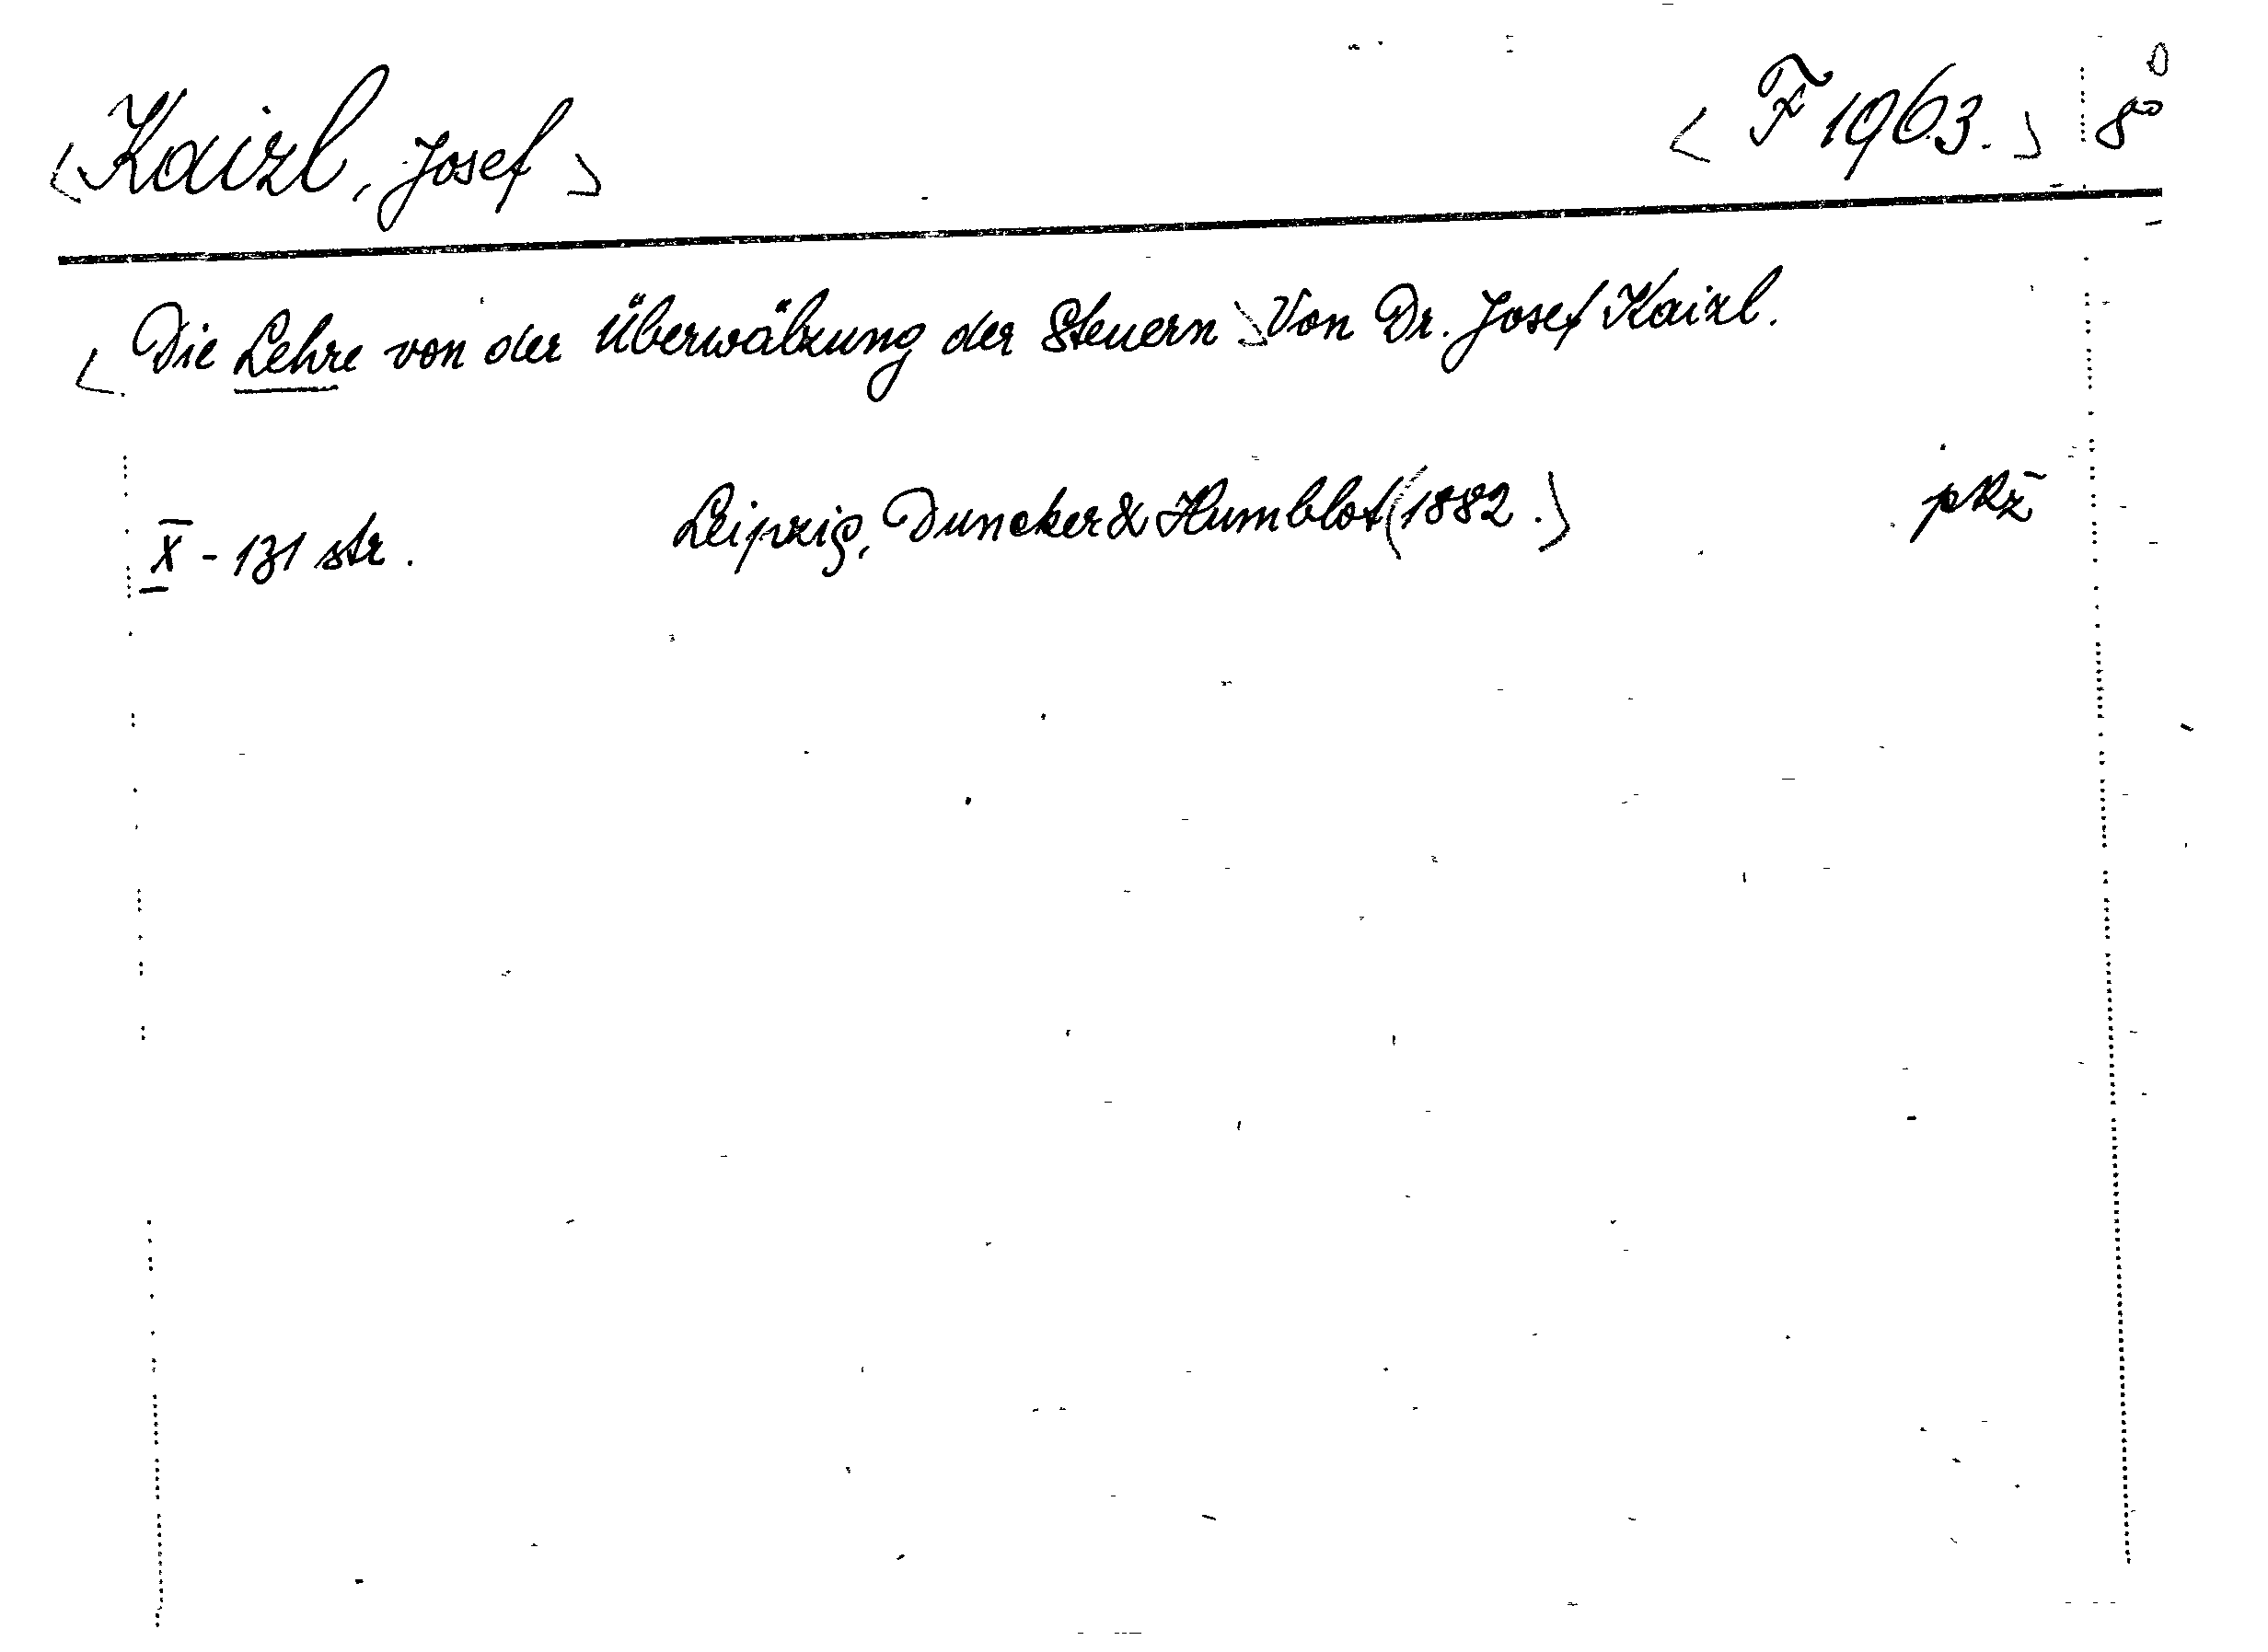 <Kaizl, Josef> <F 1963.> 8°
<Die Lehre von der Überwälzung der Steuern> Von Dr. Josef Kaizl.
X - 131 str. Leipzig, Duncker & Humblot (1882.)